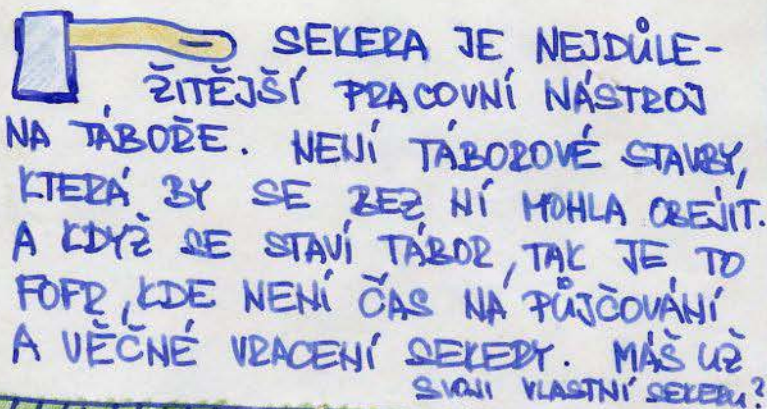 SEKERA JE NEJDŮLE-
ŽITĚJŠÍ PRACOVNÍ NÁSTROJ
NA TÁBOŘE. NENÍ TÁBOROVÉ STAVBY,
KTERÁ BY SE BEZ NÍ MOHLA OBEJÍT.
A KDYŽ SE STAVÍ TÁBOR, TAK JE TO
FOFR, KDE NENÍ ČAS NA PŮJČOVÁNÍ
A VĚČNÉ VRACENÍ SEKERY. MÁŠ UŽ
SVOJI VLASTNÍ SEKERU?